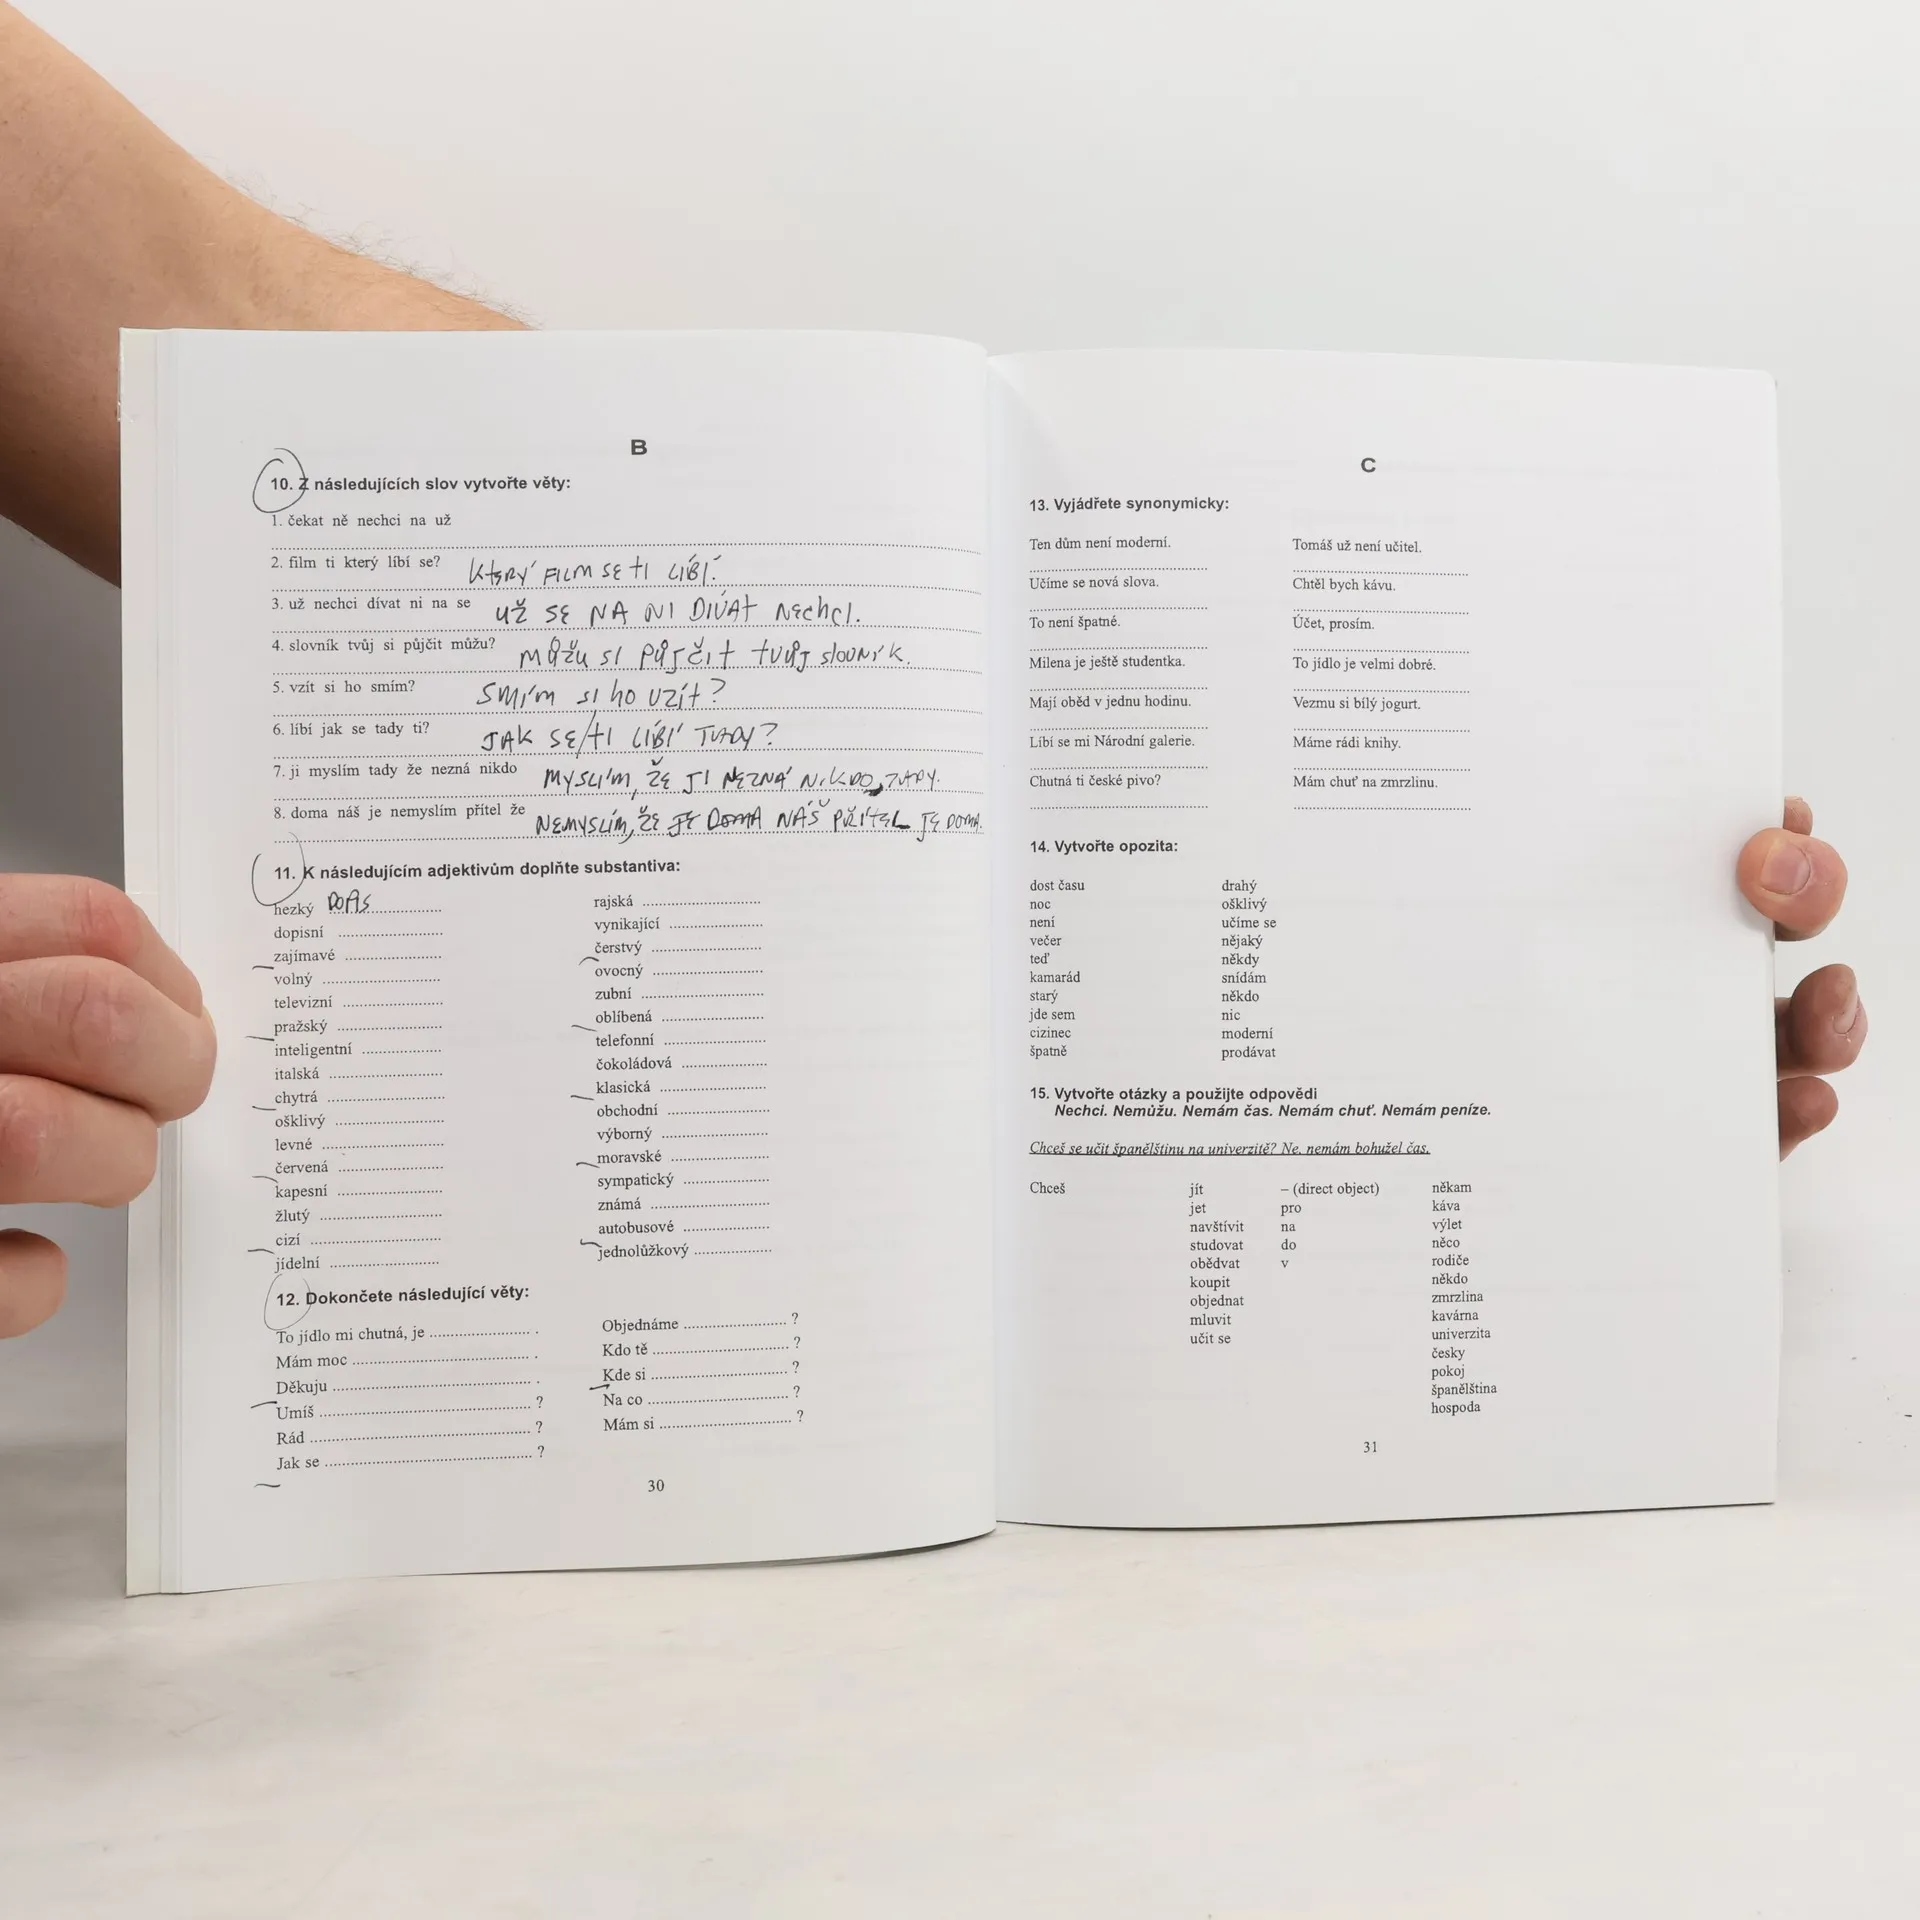 B
10. Z následujících slov vytvořte věty:
1. čekat ně nechci na už
2. film ti který líbí se? KTERÝ FILM SE TI LÍBÍ.
3. už nechci dívat ni na se UŽ SE NA NI DÍVAT NECHCI.
4. slovník tvůj si půjčit můžu? MŮŽU SI PŮJČIT TVŮJ SLOVNÍK.
5. vzít si ho smím? SMÍM SI HO VZÍT?
6. líbí jak se tady ti? JAK SE/TI LÍBÍ TADY?
7. ji myslím tady že nezná nikdo MYSLÍM, ŽE JI NEZNÁ NIKDO, TADY.
8. doma náš je nemyslím přítel že NEMYSLÍM, ŽE JE DOMA NÁŠ PŘÍTEL JE DOMA.
11. K následujícím adjektivům doplňte substantiva:
hezký DOPIS
dopisní
zajímavé
volný
televizní
pražský
inteligentní
italská
chytrá
ošklivý
levné
červená
kapesní
žlutý
cizí
jídelní
rajská
vynikající
čerstvý
ovocný
zubní
oblíbená
telefonní
čokoládová
klasická
obchodní
výborný
moravské
sympatický
známá
autobusové
jednolůžkový
12. Dokončete následující věty:
To jídlo mi chutná, je .
Mám moc .
Děkuju .
Umíš ?
Rád ?
Jak se ?
Objednáme ?
Kdo tě ?
Kde si ?
Na co ?
Mám si ?
30
C
13. Vyjádřete synonymicky:
Ten dům není moderní.
Učíme se nová slova.
To není špatné.
Milena je ještě studentka.
Mají oběd v jednu hodinu.
Líbí se mi Národní galerie.
Chutná ti české pivo?
Tomáš už není učitel.
Chtěl bych kávu.
Účet, prosím.
To jídlo je velmi dobré.
Vezmu si bílý jogurt.
Máme rádi knihy.
Mám chuť na zmrzlinu.
14. Vytvořte opozita:
dost času
noc
není
večer
teď
kamarád
starý
jde sem
cizinec
špatně
drahý
ošklivý
učíme se
nějaký
někdy
snídám
někdo
nic
moderní
prodávat
15. Vytvořte otázky a použijte odpovědi
Nechci. Nemůžu. Nemám čas. Nemám chuť. Nemám peníze.
Chceš se učit španělštinu na univerzitě? Ne, nemám bohužel čas.
Chceš
jít
jet
navštívit
studovat
obědvat
koupit
objednat
mluvit
učit se
– (direct object)
pro
na
do
v
někam
káva
výlet
něco
rodiče
někdo
zmrzlina
kavárna
univerzita
česky
pokoj
španělština
hospoda
31